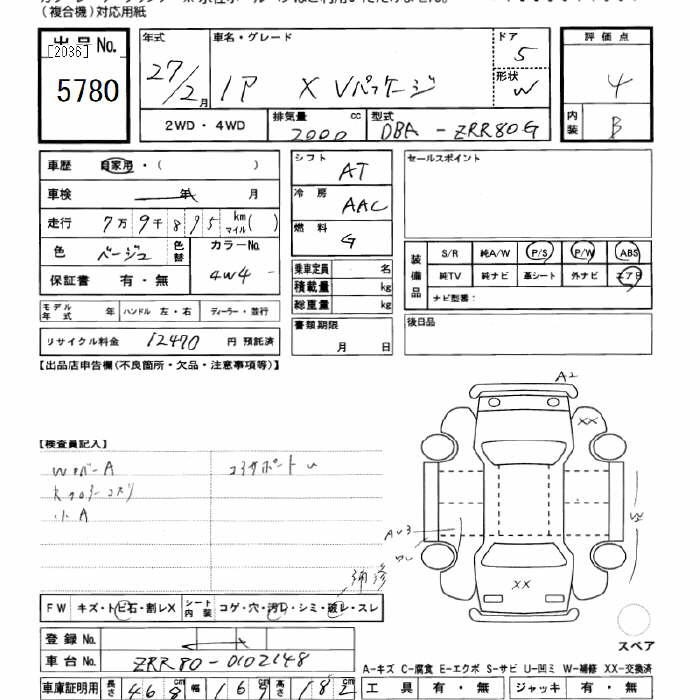 (複合機)対応用紙
出品No. [2036] 5780
年式 27/2月
車名・グレード ノア X Vパッケージ
ドア 5
形状 W
評価点 4
内装 B
2WD・4WD
排気量 2000 cc
型式 DBA-ZRR80G
車歴 自家用・( )
車検 年 月
走行 7万9千875 km マイル( )
色 ベージュ 色替
カラーNo. 4W4
保証書 有・無
シフト AT
冷房 AAC
燃料 G
乗車定員 名
積載量 kg
総重量 kg
セールスポイント
装備品 S/R 純A/W P/S P/W ABS
純TV 純ナビ 革シート 外ナビ エアB
ナビ型番:
モデル年式 年 ハンドル 左・右 ディーラー・並行
書類期限 月 日
後日品
リサイクル料金 12470 円 預託済
【出品店申告欄(不良箇所・欠品・注意事項等)】
A2
XX
【検査員記入】
小A
AU3
W
XX
補修
FW キズ・トビ石・割レX シート内装 コゲ・穴・汚レ・シミ・破レ・スレ
登録No.
車台No. ZRR80-0102148
スペア
A-キズ C-腐食 E-エクボ S-サビ U-凹ミ W-補修 XX-交換済
車庫証明用 長さ 468cm 幅 169cm 高さ 182cm
工具 有・無 ジャッキ 有・無